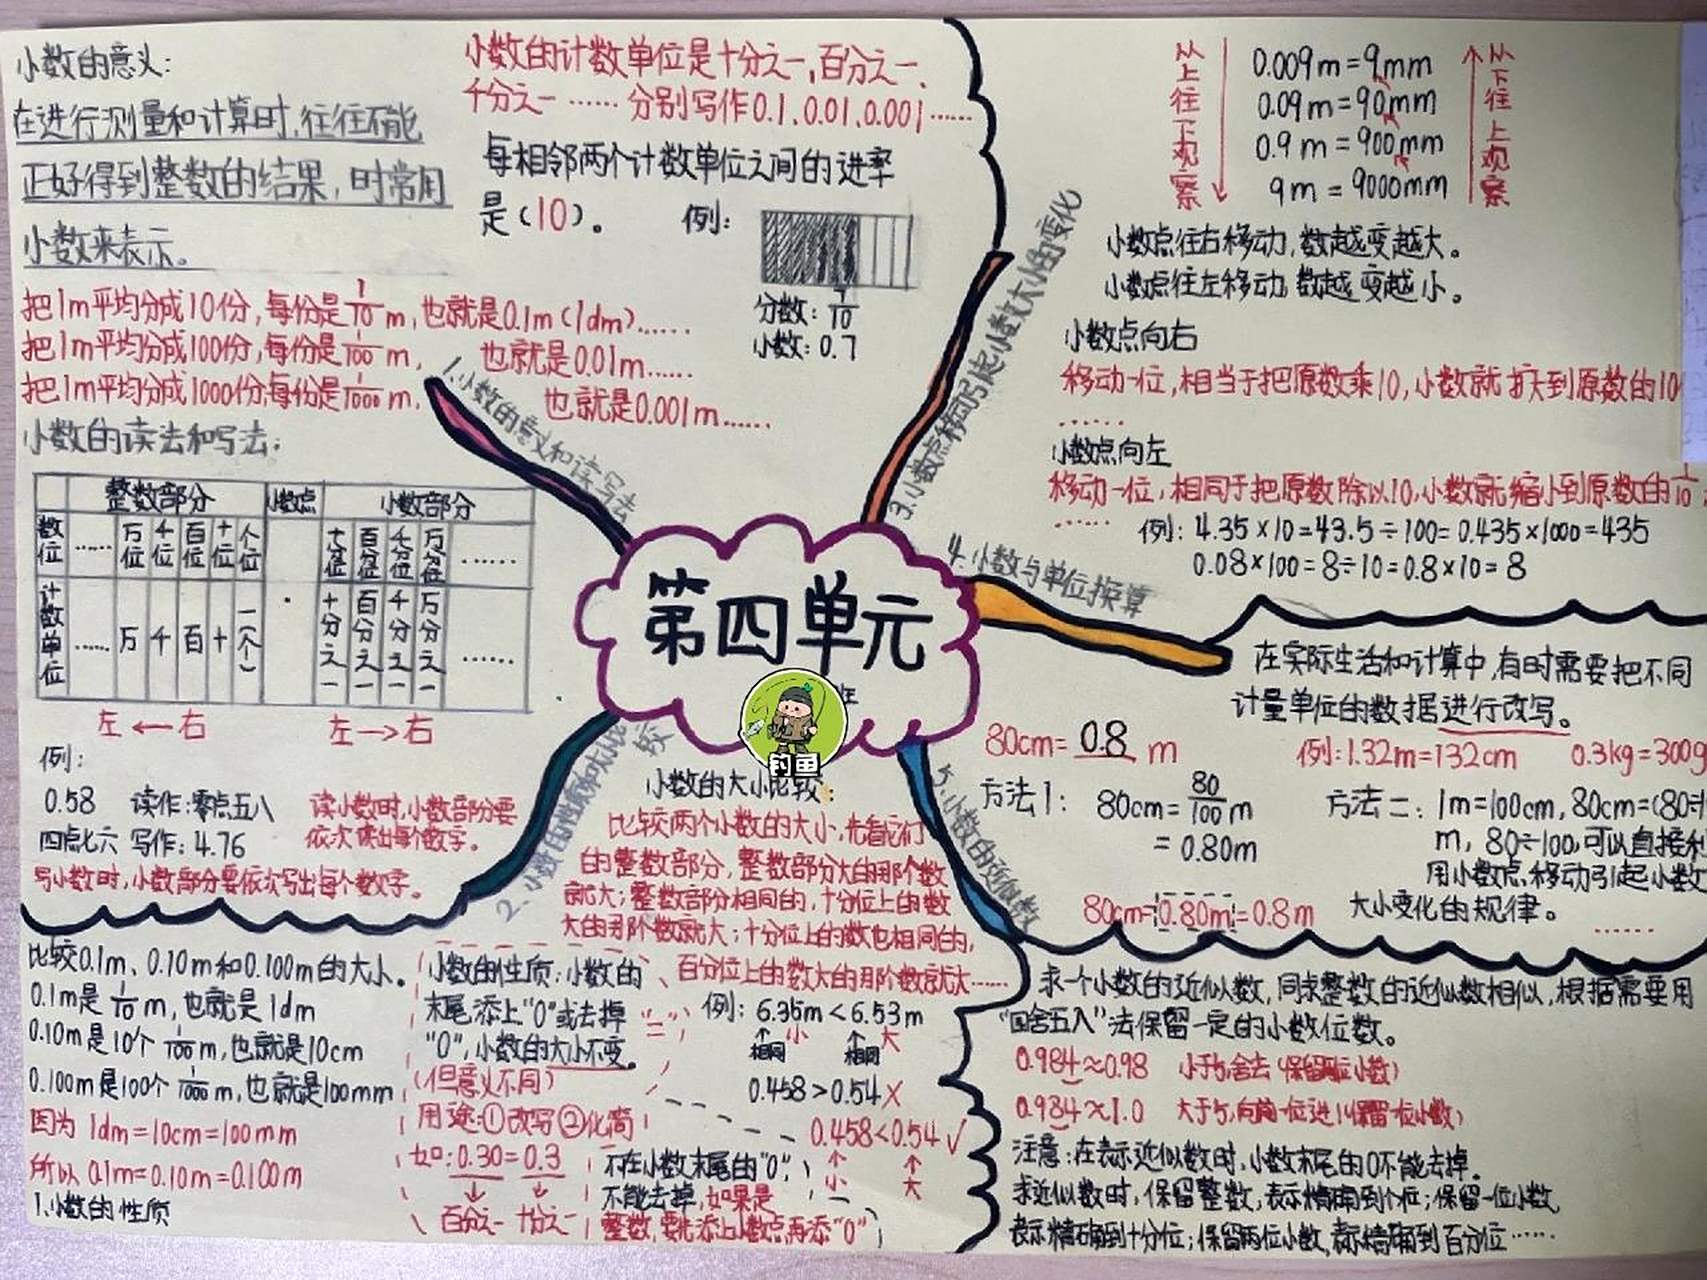 小数的意义:
在进行测量和计算时,往往不能
正好得到整数的结果,时常用
小数来表示。
把1m平均分成10份,每份是1/10m,也就是0.1m(1dm)……
把1m平均分成100份,每份是1/100m, 也就是0.01m……
把1m平均分成1000份,每份是1/1000m, 也就是0.001m……
小数的计数单位是十分之一、百分之一、
千分之一……分别写作0.1、0.01、0.001……
每相邻两个计数单位之间的进率
是(10)。 例:
分数:7/10
小数:0.7
1.小数的意义和读写法
小数的读法和写法:
整数部分 小数点 小数部分
数位 …… 万位 千位 百位 十位 个位 十分位 百分位 千分位 万分位 ……
计数单位 …… 万 千 百 十 一(个) · 十分之一 百分之一 千分之一 万分之一 ……
左←右 左→右
例:
0.58 读作:零点五八
四点七六 写作:4.76
读小数时,小数部分要
依次读出每个数字。
写小数时,小数部分要依次写出每个数字。
第四单元
班
钓鱼
2.小数的性质和大小比较
比较0.1m、0.10m和0.100m的大小。
0.1m是1/10m,也就是1dm
0.10m是10个1/100m,也就是10cm
0.100m是100个1/1000m,也就是100mm
因为1dm=10cm=100mm
所以0.1m=0.10m=0.100m
1.小数的性质
小数的性质:小数的
末尾添上"0"或去掉
"0",小数的大小不变。
(但意义不同)
"="
用途:①改写②化简
如:0.30=0.3
百分之一 十分之一
不在小数末尾的"0",
不能去掉,如果是
整数,要先添上小数点,再添"0"
小数的大小比较:
比较两个小数的大小,先看它们
的整数部分,整数部分大的那个数
就大;整数部分相同的,十分位上的数
大的那个数就大;十分位上的数也相同的,
百分位上的数大的那个数就大……
例:6.35m<6.53m
相同 小 相同 大
0.458>0.54×
0.458<0.54√
小 大
3.小数点移动引起小数大小的变化
从上往下观察
0.009m=9mm
0.09m=90mm
0.9m=900mm
9m=9000mm
从下往上观察
小数点往右移动,数越变越大。
小数点往左移动,数越变越小。
小数点向右
移动一位,相当于把原数乘10,小数就扩大到原数的10
……
小数点向左
移动一位,相同于把原数除以10,小数就缩小到原数的1/10
……
例:4.35×10=43.5÷100=0.435×1000=435
0.08×100=8÷10=0.8×10=8
4.小数与单位换算
在实际生活和计算中,有时需要把不同
计量单位的数据进行改写。
80cm=0.8m 例:1.32m=132cm 0.3kg=300g
方法1: 80cm=80/100m
=0.80m
方法二:1m=100cm,80cm=(80÷1
m,80÷100,可以直接利
用小数点移动引起小数
大小变化的规律。
80cm=0.80m=0.8m
……
5.小数的近似数
求一个小数的近似数,同求整数的近似数相似,根据需要用
"四舍五入"法保留一定的小数位数。
0.984≈0.98 小于5,舍去(保留两位小数)
0.984≈1.0 大于5,向前一位进1(保留一位小数)
注意:在表示近似数时,小数末尾的0不能去掉。
求近似数时,保留整数,表示精确到个位;保留一位小数,
表示精确到十分位;保留两位小数,表示精确到百分位……